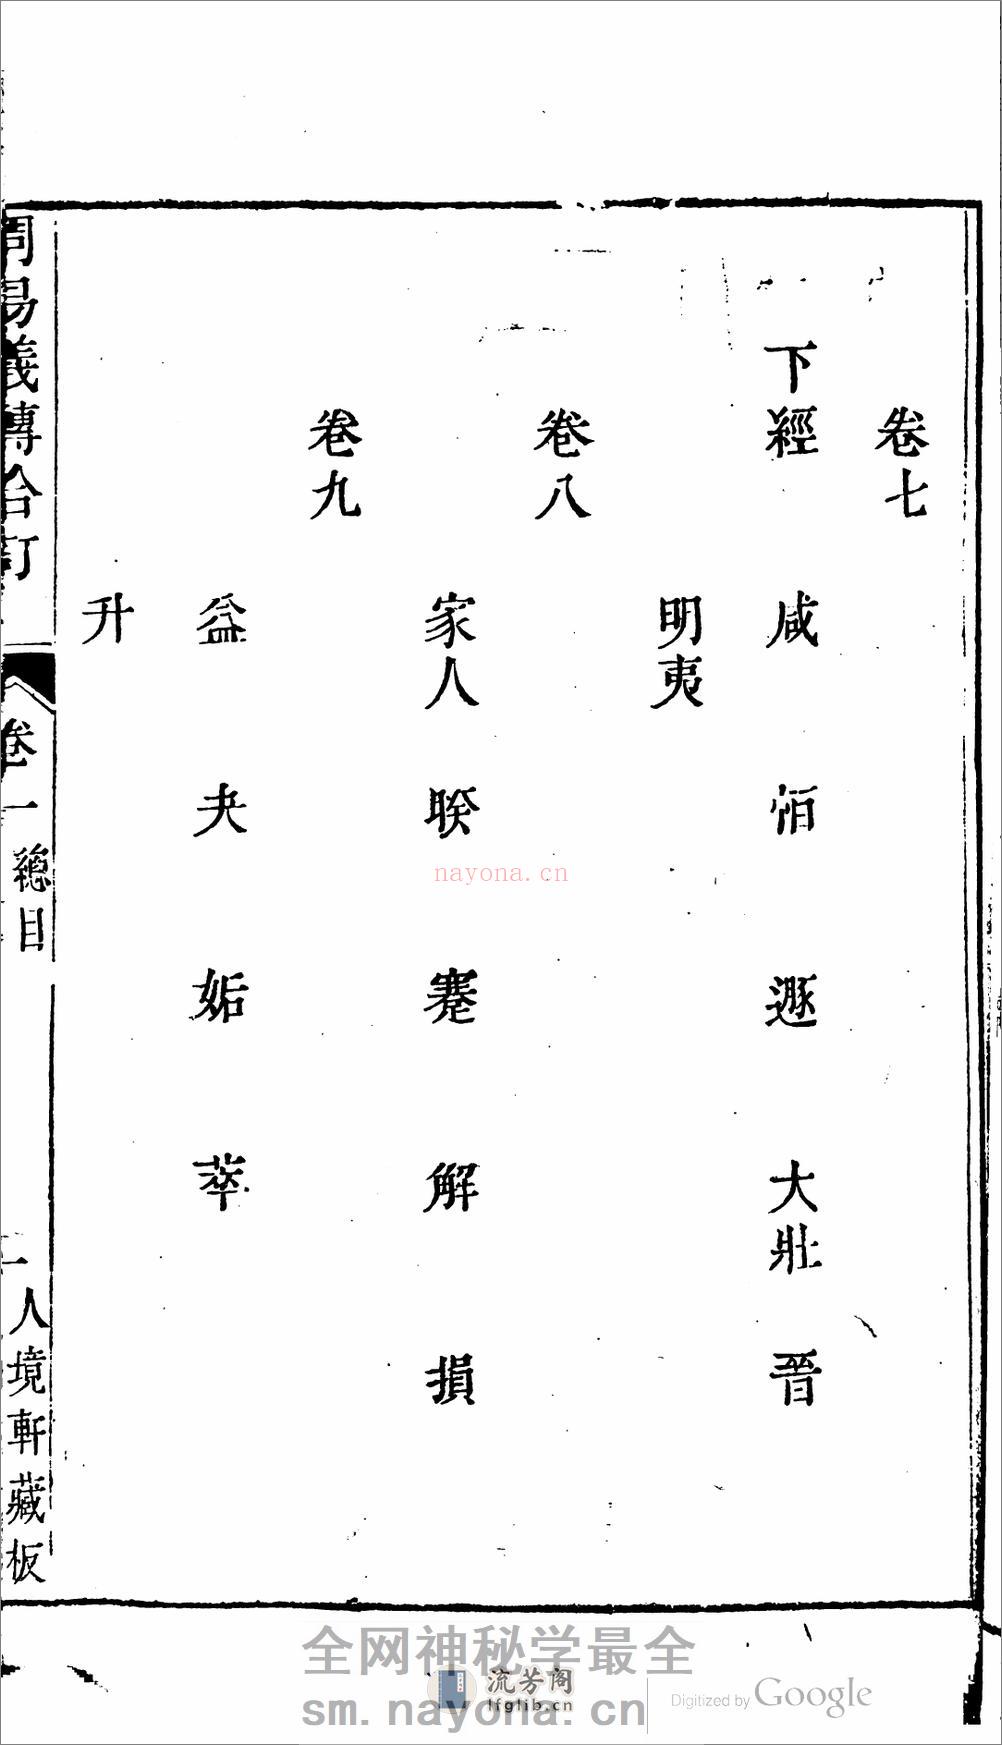 卷七
下經 咸 恒 遯 大壯 晉
明夷
卷八
家人 睽 蹇 解 損
卷九
益 夬 姤 萃
升
周易義傳合訂 卷一 總目 一 人境軒藏板
nayona.cn
全网神秘学最全
流芳阁
lfglib.cn
sm.nayona.cn
Digitized by Google